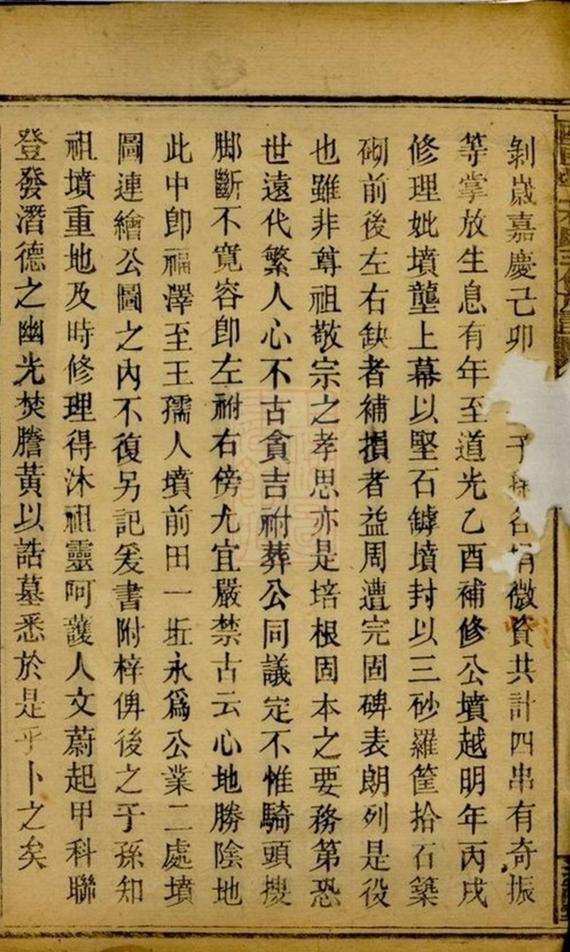 剝嵗嘉慶己卯子孫各捐微資共計四串有奇振
等掌放生息有年至道光乙酉補修公墳越明年丙戌
修理妣墳壟上幕以堅石罅墳封以三砂羅筐拾石築
砌前後左右缺者補損者益周遭完固碑表朗列是役
也雖非尊祖敬宗之孝思亦是培根固本之要務第恐
世遠代繁人心不古貪吉祔葬公同議定不惟騎頭搜
脚斷不寛容卽左祔右傍尤宜嚴禁古云心地勝陰地
此中卽福澤至王孺人墳前田一坵永爲公業二處墳
圖連繪公圖之内不復另記爰書附梓俾後之子孫知
祖墳重地及時修理得沐祖靈阿護人文蔚起甲科聯
登發潛德之幽光焚謄黃以誥墓悉於是乎卜之矣